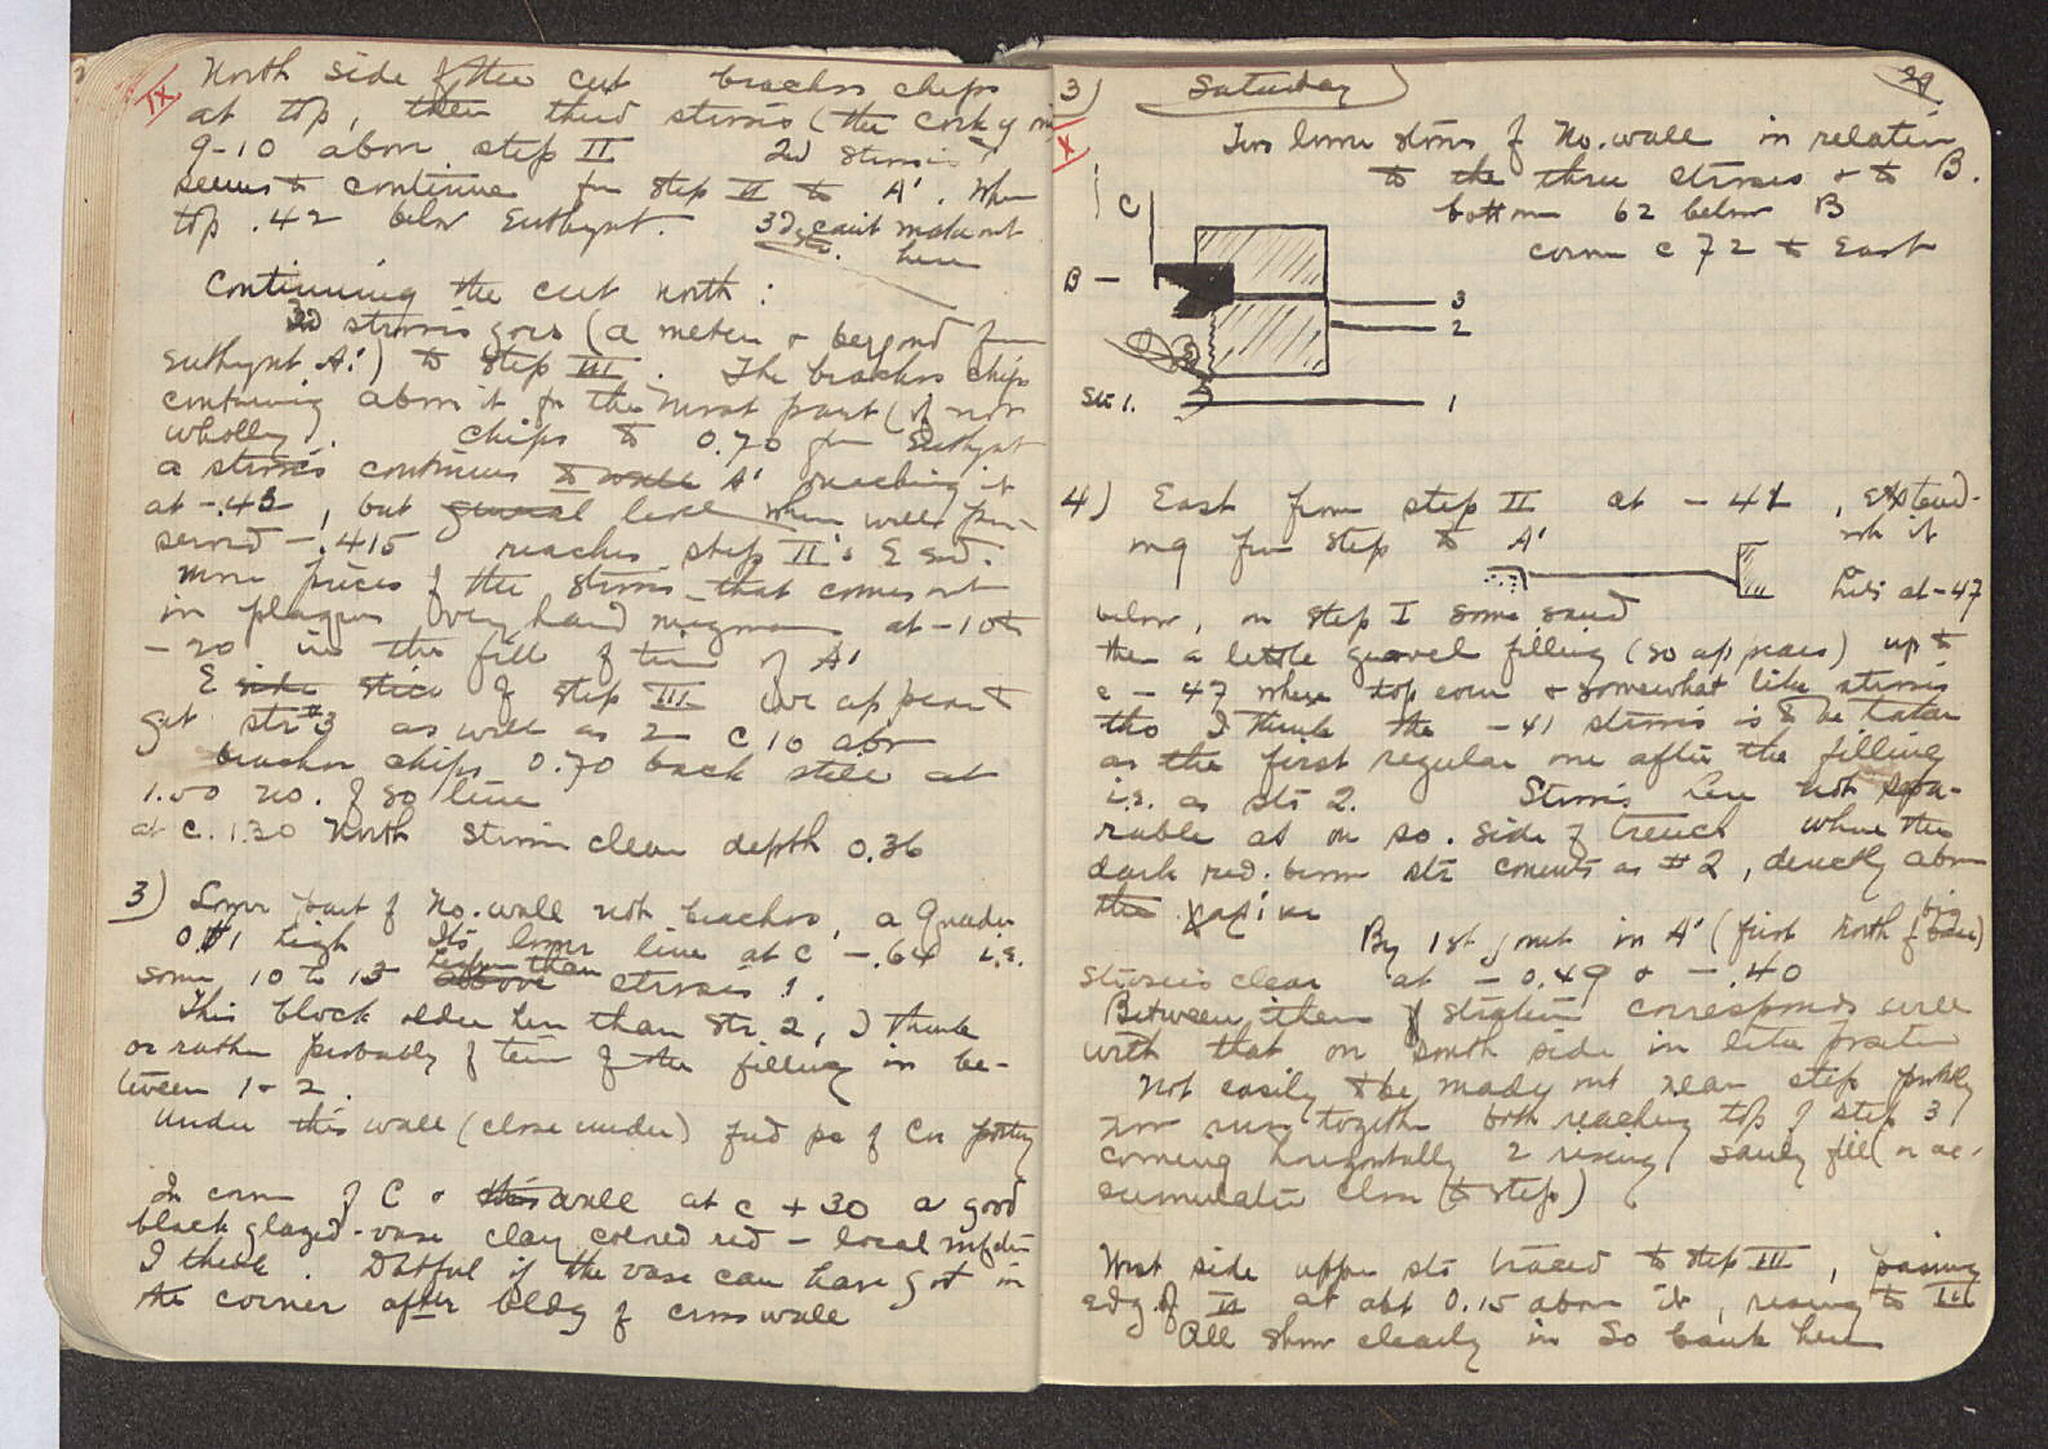 IX
North side of the cut brachos chips
at top, then third strosis (the corky one
9-10 above step II 2d strosis
seems to continue fm step II to A'. Where
top .42 below Euthynt. 3d str. can't make out
here
Continuing the cut north:
3d strosis goes (a meter & beyond from
Euthynt A') to step III. The brachos chips
continuing above it for the most part (if not
wholly). chips to 0.70 fm Euthynt
a strosis continues to wall A' reaching it
at -.43, but general level where well pre-
served -.415 reaches step II's E end.
More pieces of the strosis that comes out
in plaques very hard at -10 to
-20 in the fill of time of A'
E side of step III we appear to
get str #3 as well as 2 c 10 abv
brachos chips 0.70 back still at
1.00 no. of so line
at c. 1.30 North strosis clear depth 0.36
3) Lower part of No. wall not brachos, a
high Its lower line at c -.64 i.e.
some 10 to 13 higher than strosis 1.
This block older here than Str. 2, I think
or rather probably of time of the filling in be-
tween 1 & 2.
Under this wall (close under) find pc of Cor pottery
In corner of C & this wall at c +30 a good
black glazed vase clay colored red - local
I think. Dbtful if the vase can have got in
the corner after bldg of cross wall
3) Saturday
X
Two lower stones of No. wall in relation
to the three stroses & to B.
bottom 62 below B
corner c 72 to East
C
B -
3
2
Str 1. 1
4) East from step II at -41, extend-
ing from step to A'
wh it
hits at -47
below, on step I some sand
then a little gravel filling (so appears) up to
c -47 where top even & somewhat like strosis
tho I think the -41 strosis is to be taken
as the first regular one after the filling
i.e. as str 2. Strosis here not sepa-
rable as on so. side of trench where the
dark red. brown str counts as #2, directly above
the
By 1st joint in A' (first North of big base)
strosis clear at -0.49 & -.40
Between them stratum corresponds well
with that on south side in like position
Not easily to be made out near step probably
now run together both reaching top of step 3
coming horizontally 2 rising sandy fill (or ac-
cumulation close to step)
West side upper str traced to step III, passing
edg. of II at abt 0.15 above it, rising to III
All show clearly in So bank here